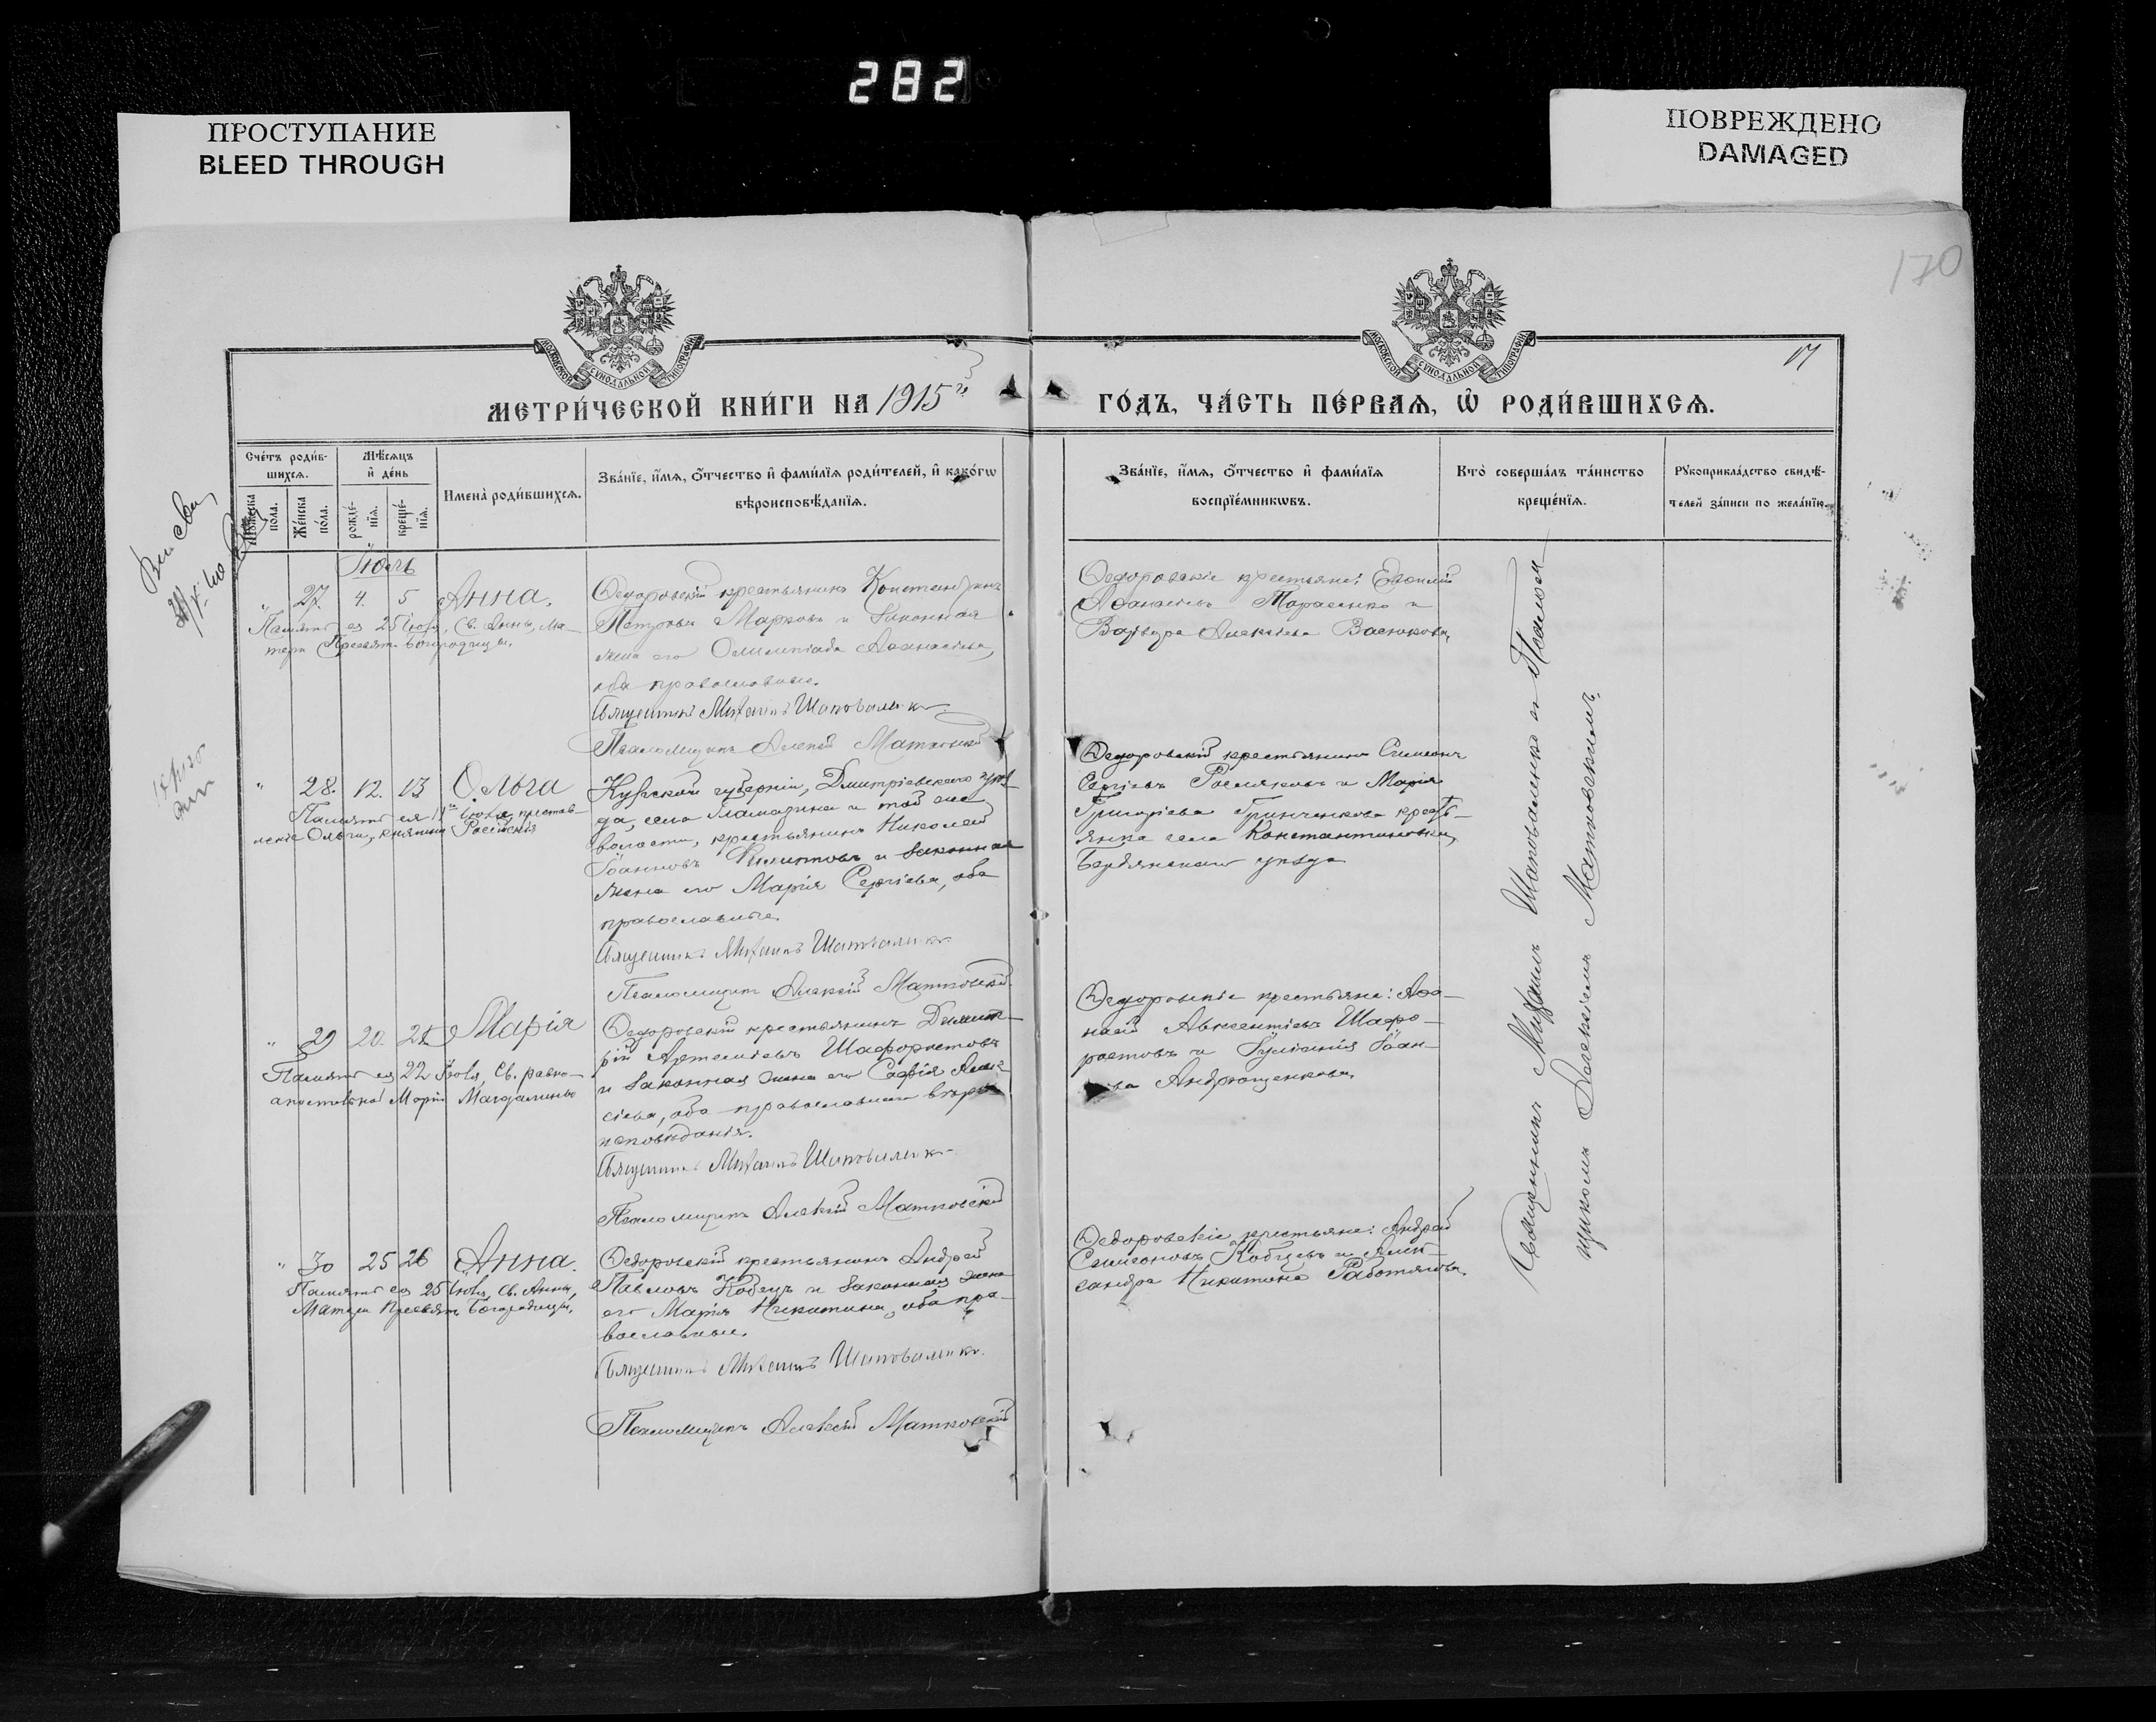 282
ПРОСТУПАНИЕ
BLEED THROUGH
ПОВРЕЖДЕНО
DAMAGED
170
17
МОСКОВСКОЙ СѴНОДАЛЬНОЙ ТИПОГРАФІИ
МОСКОВСКОЙ СѴНОДАЛЬНОЙ ТИПОГРАФІИ
МЕТРИ́ЧЕСКОЙ КНИ́ГИ НА 1915й ГО́ДЪ, ЧА́СТЬ ПЕ́РВАѦ, Ѡ҆ РОДИ́ВШИХСѦ.
Сче́тъ роди́в-
шихсѧ.
Мужеска
пола.
Же́нска
по́ла.
Мѣ́сѧцъ
и҆ де́нь
рожде́-
нїѧ.
креще́-
нїѧ.
Имена̀ роди́вшихсѧ.
Зва́нїе, и҆́мѧ, ѻ҆́тчество и҆ фами́лїѧ роди́телей, и҆ како́гѡ
вѣроисповѣ́данїѧ.
Зва́нїе, и҆́мѧ, ѻ҆́тчество и҆ фами́лїѧ
воспрїе́мникѡвъ.
Кто̀ соверша́лъ та́инство
креще́нїѧ.
Рꙋкоприкла́дство свидѣ́-
телей за́писи по жела́нїю.
Іюль
" 27. 4. 5 Анна.
Память ея 25 Іюля, Св. Анны, Ма-
тери Пресвят. Богородицы.
Ѳедоровскій крестьянинъ Константинъ
Петровъ Марковъ и законная
жена его Олимпіада Аѳанасіева,
оба православные.
Священникъ Михаилъ Шаповаленко
Псаломщикъ Алексій Матковскій
Ѳедоровскіе крестьяне:
Аѳанасіевъ Тарасенко и
Варвара Алексіева Васюкова,
" 28. 12. 13 Ольга
Память ея 11го Іюля, престав-
леніе Ольги, княгини Россійскія
Курской губерніи, Дмитріевскаго уѣз-
да, села и той же
волости, крестьянинъ Николай
Іоанновъ Филиповъ и законная
жена его Марія Сергіева, оба
православные.
Священникъ Михаилъ Шаповаленко
Псаломщикъ Алексій Матковскій
Ѳедоровскій крестьянинъ Симеонъ
Сергіевъ и Марія
Григоріева Гринченкова кресть-
янка села Константиновки,
Бердянскаго уѣзда
" 29 20. 21 Марія
Память ея 22 Іюля, Св. равно-
апостольной Маріи Магдалины
Ѳедоровскій крестьянинъ Димит-
рій Артеміевъ Шафоростовъ
и законная жена его Софія Алек-
сіева, оба православнаго вѣро-
исповѣданія.
Священникъ Михаилъ Шаповаленко
Псаломщикъ Алексій Матковскій
Ѳедоровскіе крестьяне: Аѳа-
насій Авксентіевъ Шафо-
ростовъ и Іуліанія Іоан-
нова Андрющенкова,
" 30 25 26 Анна.
Память ея 25 Іюля, Св. Анны,
Матери Пресвят. Богородицы,
Ѳедоровскій крестьянинъ Андрей
Павловъ Кобецъ и законная жена
его Марія Никитина, оба пра-
вославные.
Священникъ Михаилъ Шаповаленко
Псаломщикъ Алексій Матковскій
Ѳедоровскіе крестьяне: Андрей
Симеоновъ Кобцевъ и Алек-
сандра Никитина Работягова.
Священникъ Михаилъ Шаповаленко съ Псаломщ-
щикомъ Алексіемъ Матковскимъ.